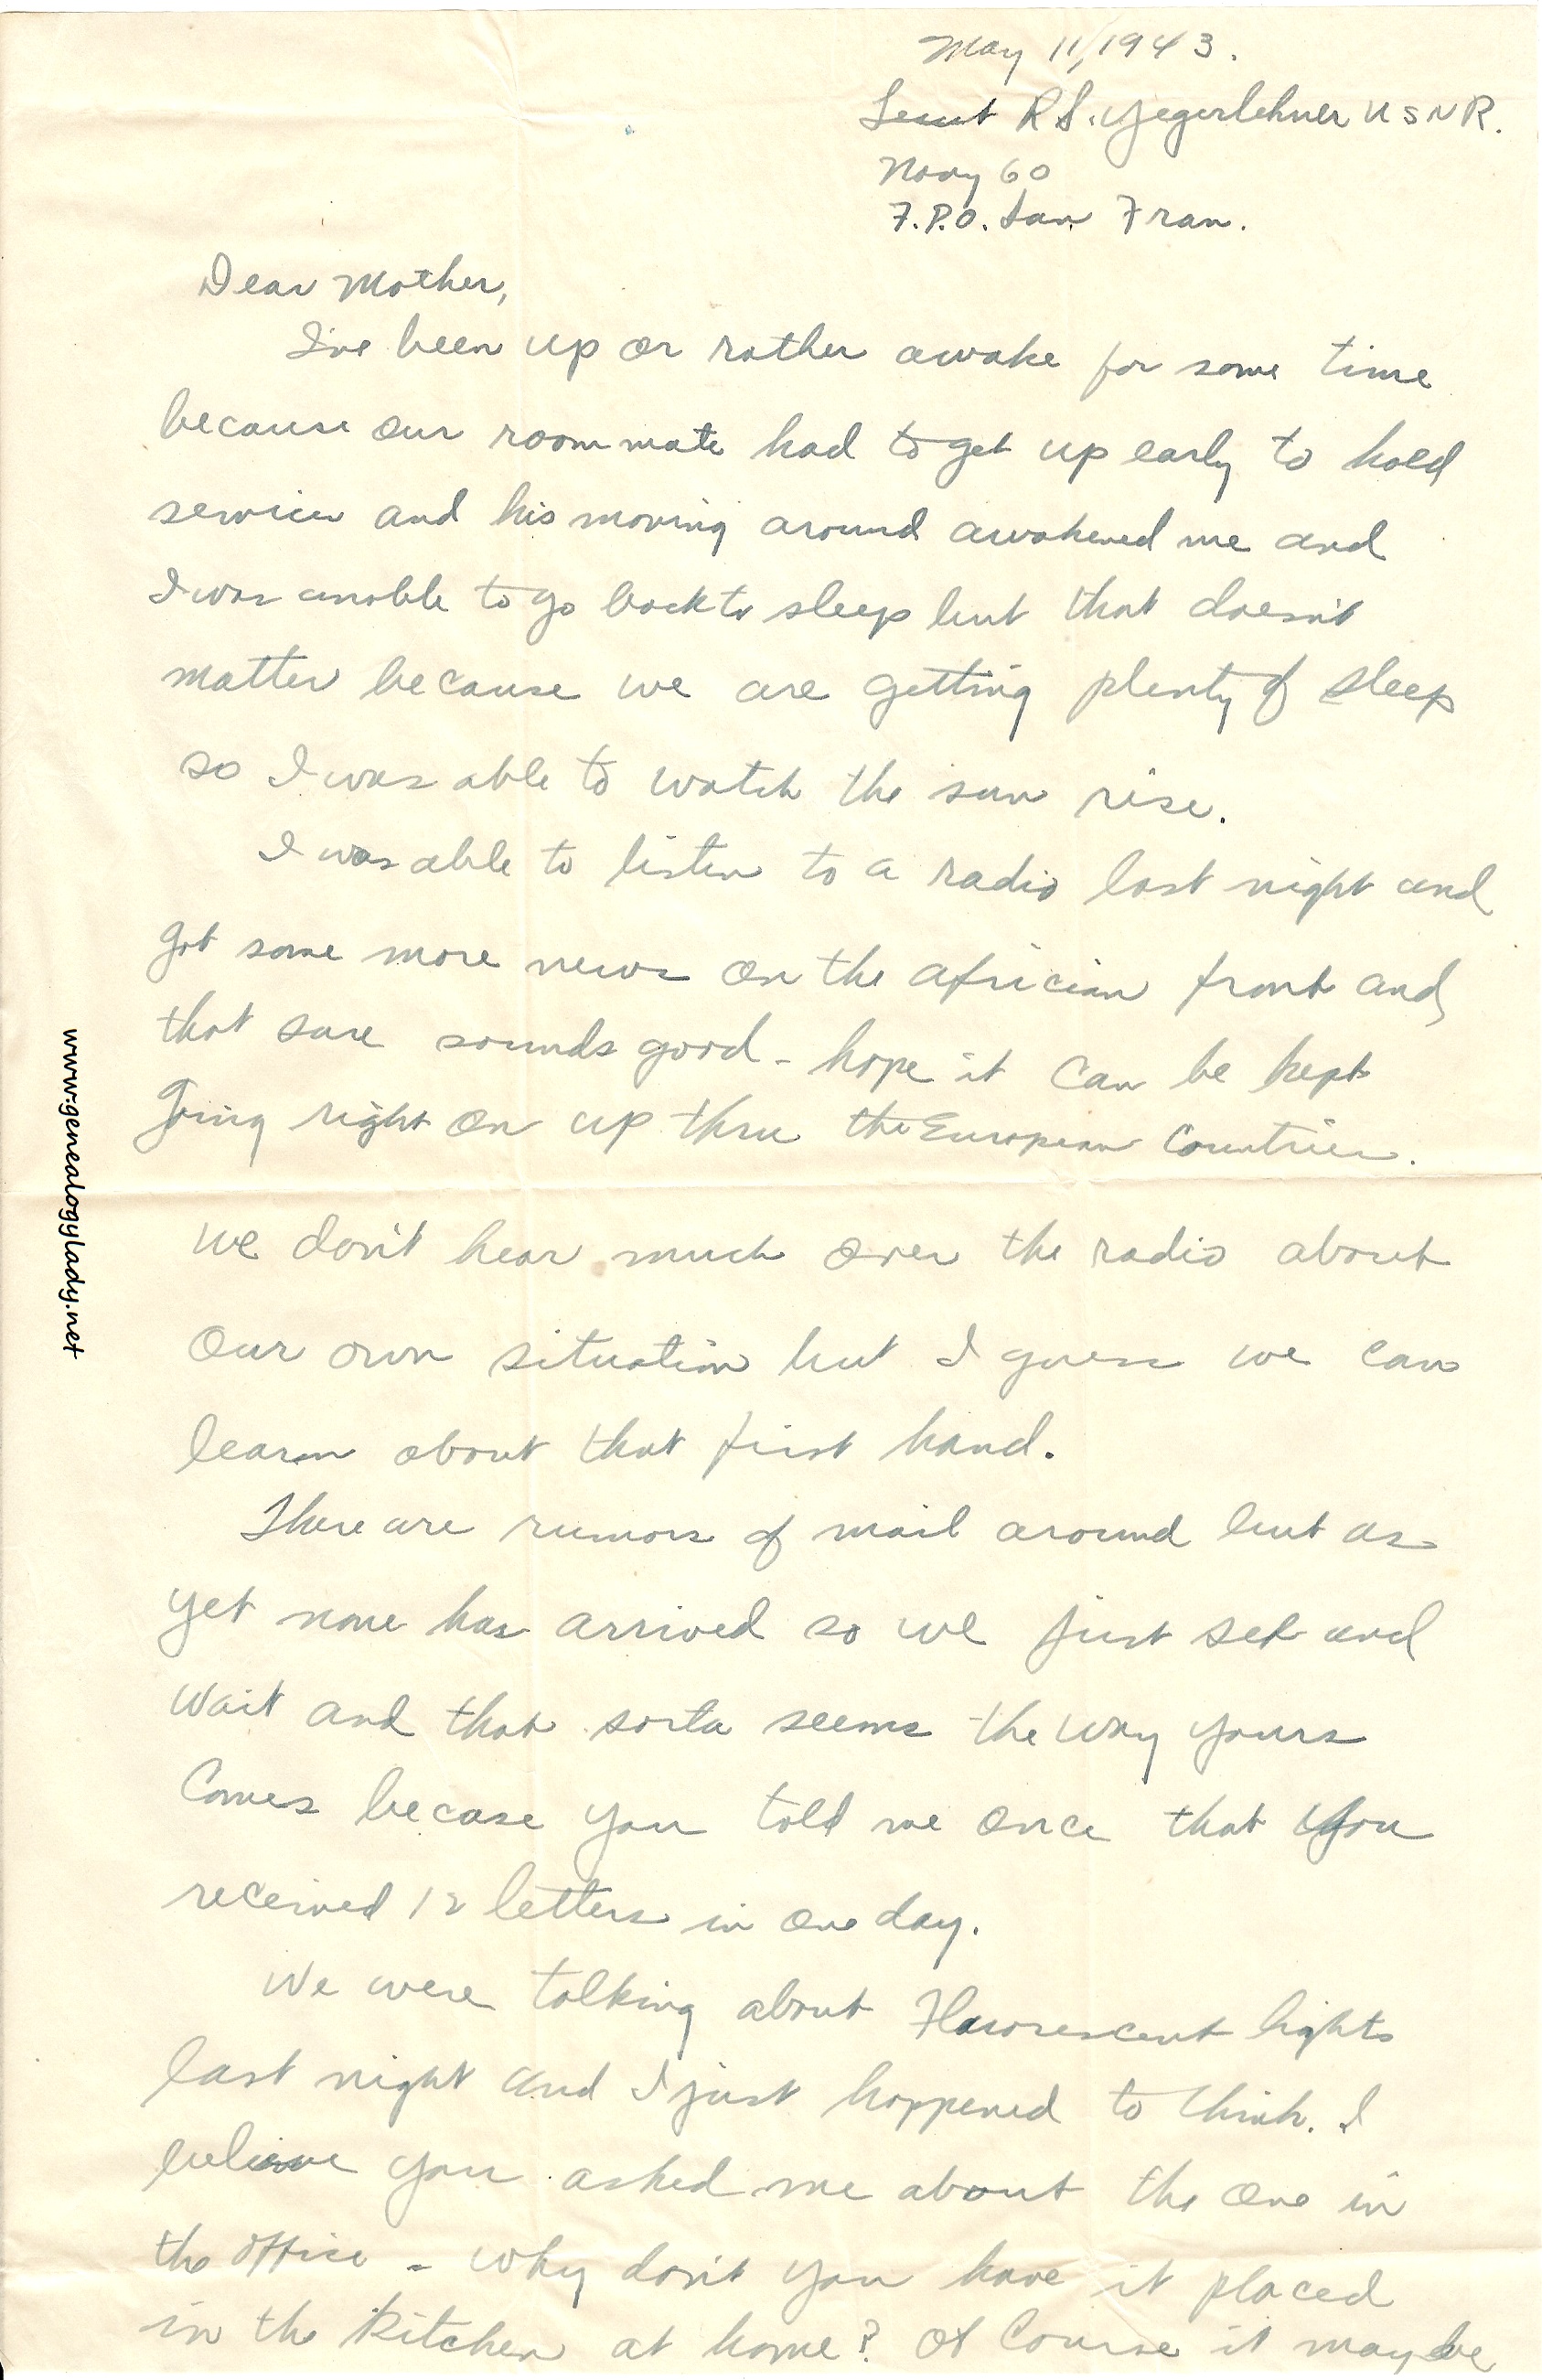 May 11, 1943.
Lieut R S. Yegerlehner USNR.
Navy 60
F.P.O. San Fran.
Dear Mother,
I've been up or rather awake for some time
because our roommate had to get up early to hold
services and his moving around awakened me and
I was unable to go back to sleep but that doesn't
matter because we are getting plenty of sleep
so I was able to watch the sun rise.
I was able to listen to a radio last night and
got some more news on the africian front and
that sure sounds good - hope it can be kept
going right on up thru the European Countries.
We don't hear much over the radio about
our own situation but I guess we can
learn about that first hand.
There are rumors of mail around but as
yet none has arrived so we just set and
wait and that sorta seems the way yours
comes becase you told me once that you
received 12 letters in one day.
We were talking about Flourescent lights
last night and I just happened to think. I
believe you asked me about the one in
the office - why don't you have it placed
in the kitchen at home? Of Course it may be
www.genealogylady.net